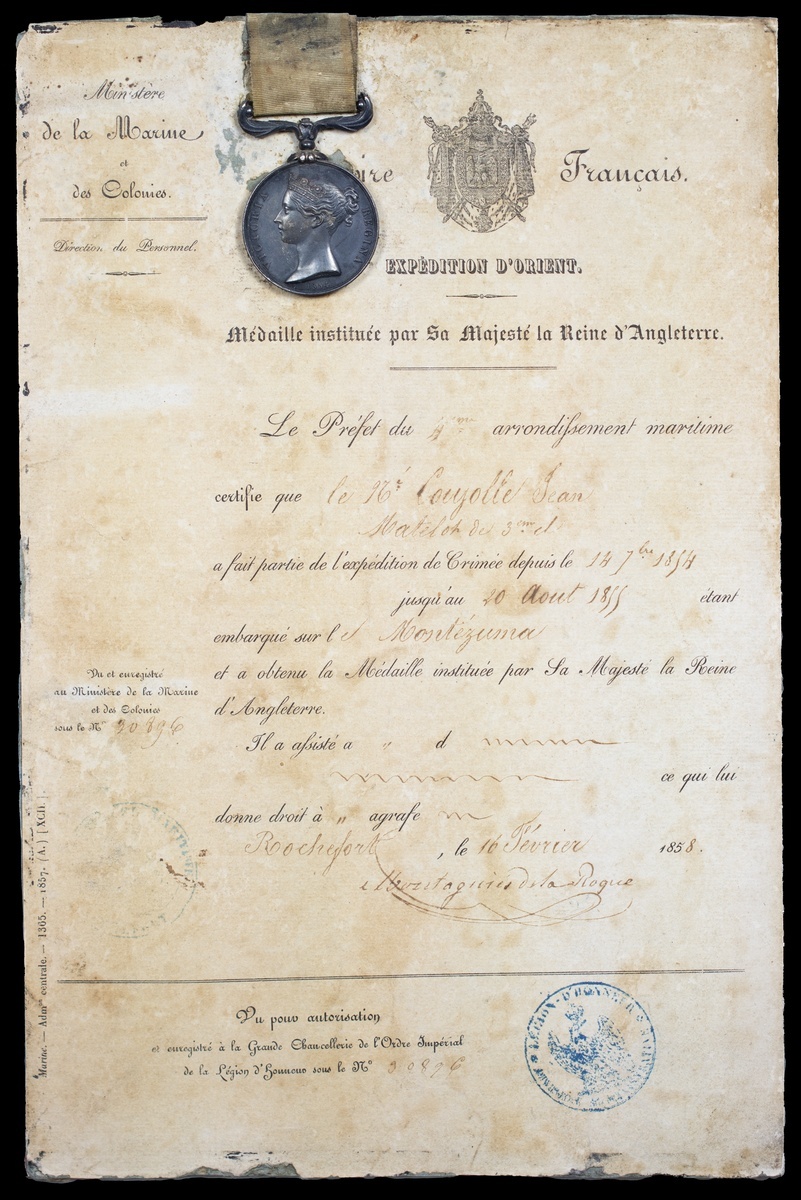 Ministère
de la Marine
et
des Colonies.
Direction du Personnel.
ire Français.
EXPÉDITION D'ORIENT.
Médaille instituée par Sa Majesté la Reine d'Angleterre.
Le Préfet du 4me arrondissement maritime
certifie que le Né Couyolle Jean
Matelot de 3me cl
a fait partie de l'expédition de Crimée depuis le 14 7bre 1854
jusqu'au 20 Aout 1855 étant
embarqué sur le Montézuma
et a obtenu la Médaille instituée par Sa Majesté la Reine
d'Angleterre.
Il a assisté a " d
ce qui lui
donne droit à " agrafe
Rochefort, le 16 Février 1858.
de la Roque
Vu et enregistré
au Ministère de la Marine
et des Colonies
sous le No 30896
Marine. — Admon centrale. — 1365. — 1857. (A.) [XCII.]
Vu pour autorisation
et enregistré à la Grande Chancellerie de l'Ordre Impérial
de la Légion d'Honneur sous le No 30896
LÉGION D'HONNEUR